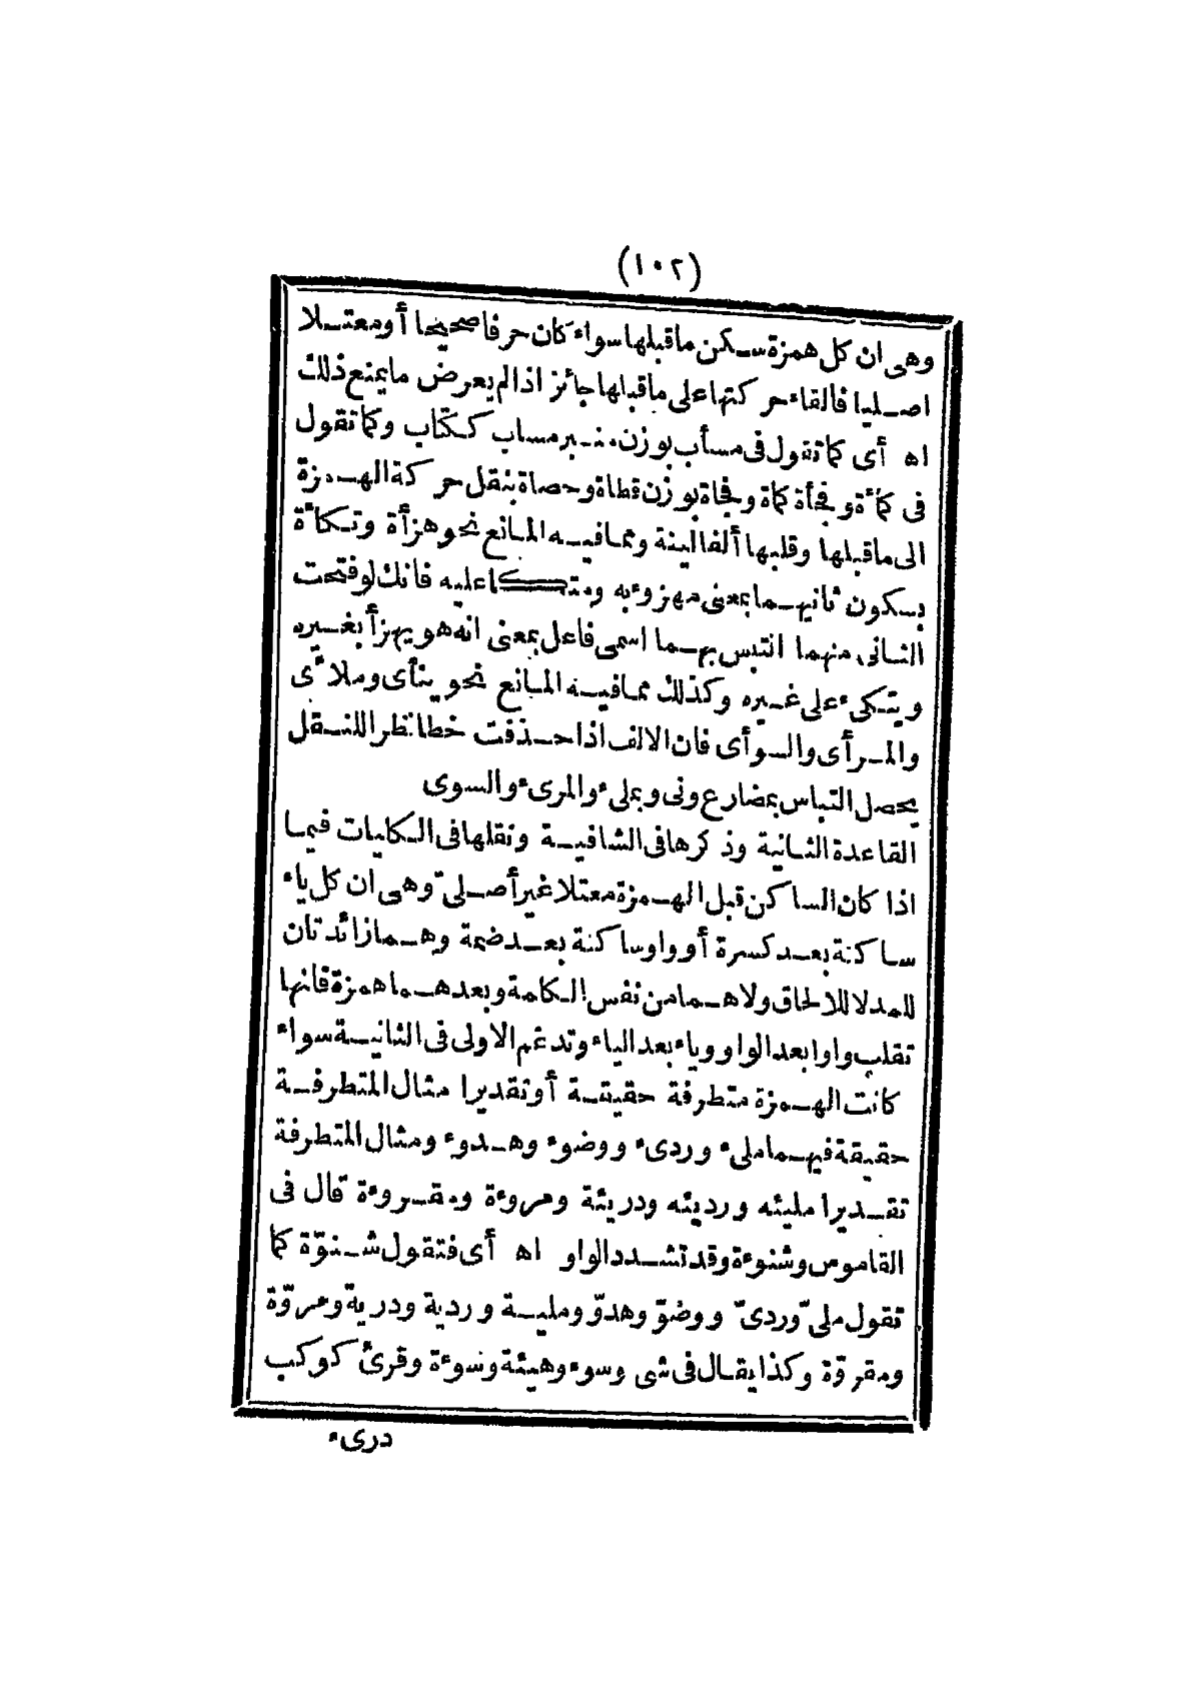 (١٠٢)
وهى ان كل همزة سكن ماقبلها سواء كان حرفا صحيحا أو معتلا
اصليا فالقاء حركتها على ماقبلها جائز اذا لم يعرض مايمنع ذلك
اه أى كما تقول فى مسأب بوزن منبر مساب ككتاب وكما تقول
فى كمأة وفجأة كماة وفجاة بوزن قطاة وحصاة بنقل حركة الهمزة
الى ماقبلها وقلبها ألفا لينة ومما فيه المانع نحو هزأة وتكأة
بسكون ثانيهما بمعنى مهزوء به ومتكا عليه فانك لو فتحت
الثانى منهما التبس بهما اسمى فاعل بمعنى انه هو يهزأ بغيره
ويتكىء على غيره وكذلك مما فيه المانع نحو ينأى وملأى
والمرأى والسوأى فان الالف اذا حذفت خطا نظرا للنقل
يحصل التباس بمضارع ونى وبملىء والمرىء والسوى
القاعدة الثانية وذكرها فى الشافية ونقلها فى الكليات فيما
اذا كان الساكن قبل الهمزة معتلا غير أصلىّ وهى ان كل ياء
ساكنة بعد كسرة أو واو ساكنة بعد ضمة وهما زائدتان
للمد لا للالحاق ولا هما من نفس الكلمة وبعدهما همزة فانها
تقلب واوا بعد الواو وياء بعد الياء وتدغم الاولى فى الثانية سواء
كانت الهمزة متطرفة حقيقة أو تقديرا مثال المتطرفة
حقيقة فيهما ملىء وردىء ووضوء وهدوء ومثال المتطرفة
تقديرا مليئه ورديئه ودريئة ومروءة ومقروءة قال فى
القاموس وشنوءة وقد تشدد الواو اه أى فتقول شنوّة كما
تقول ملىّ وردىّ ووضوّ وهدوّ ومليـة وردية ودرية ومروّة
ومقروّة وكذا يقال فى شى وسوء وهيئة وسوءة وقرئ كوكب
درىء